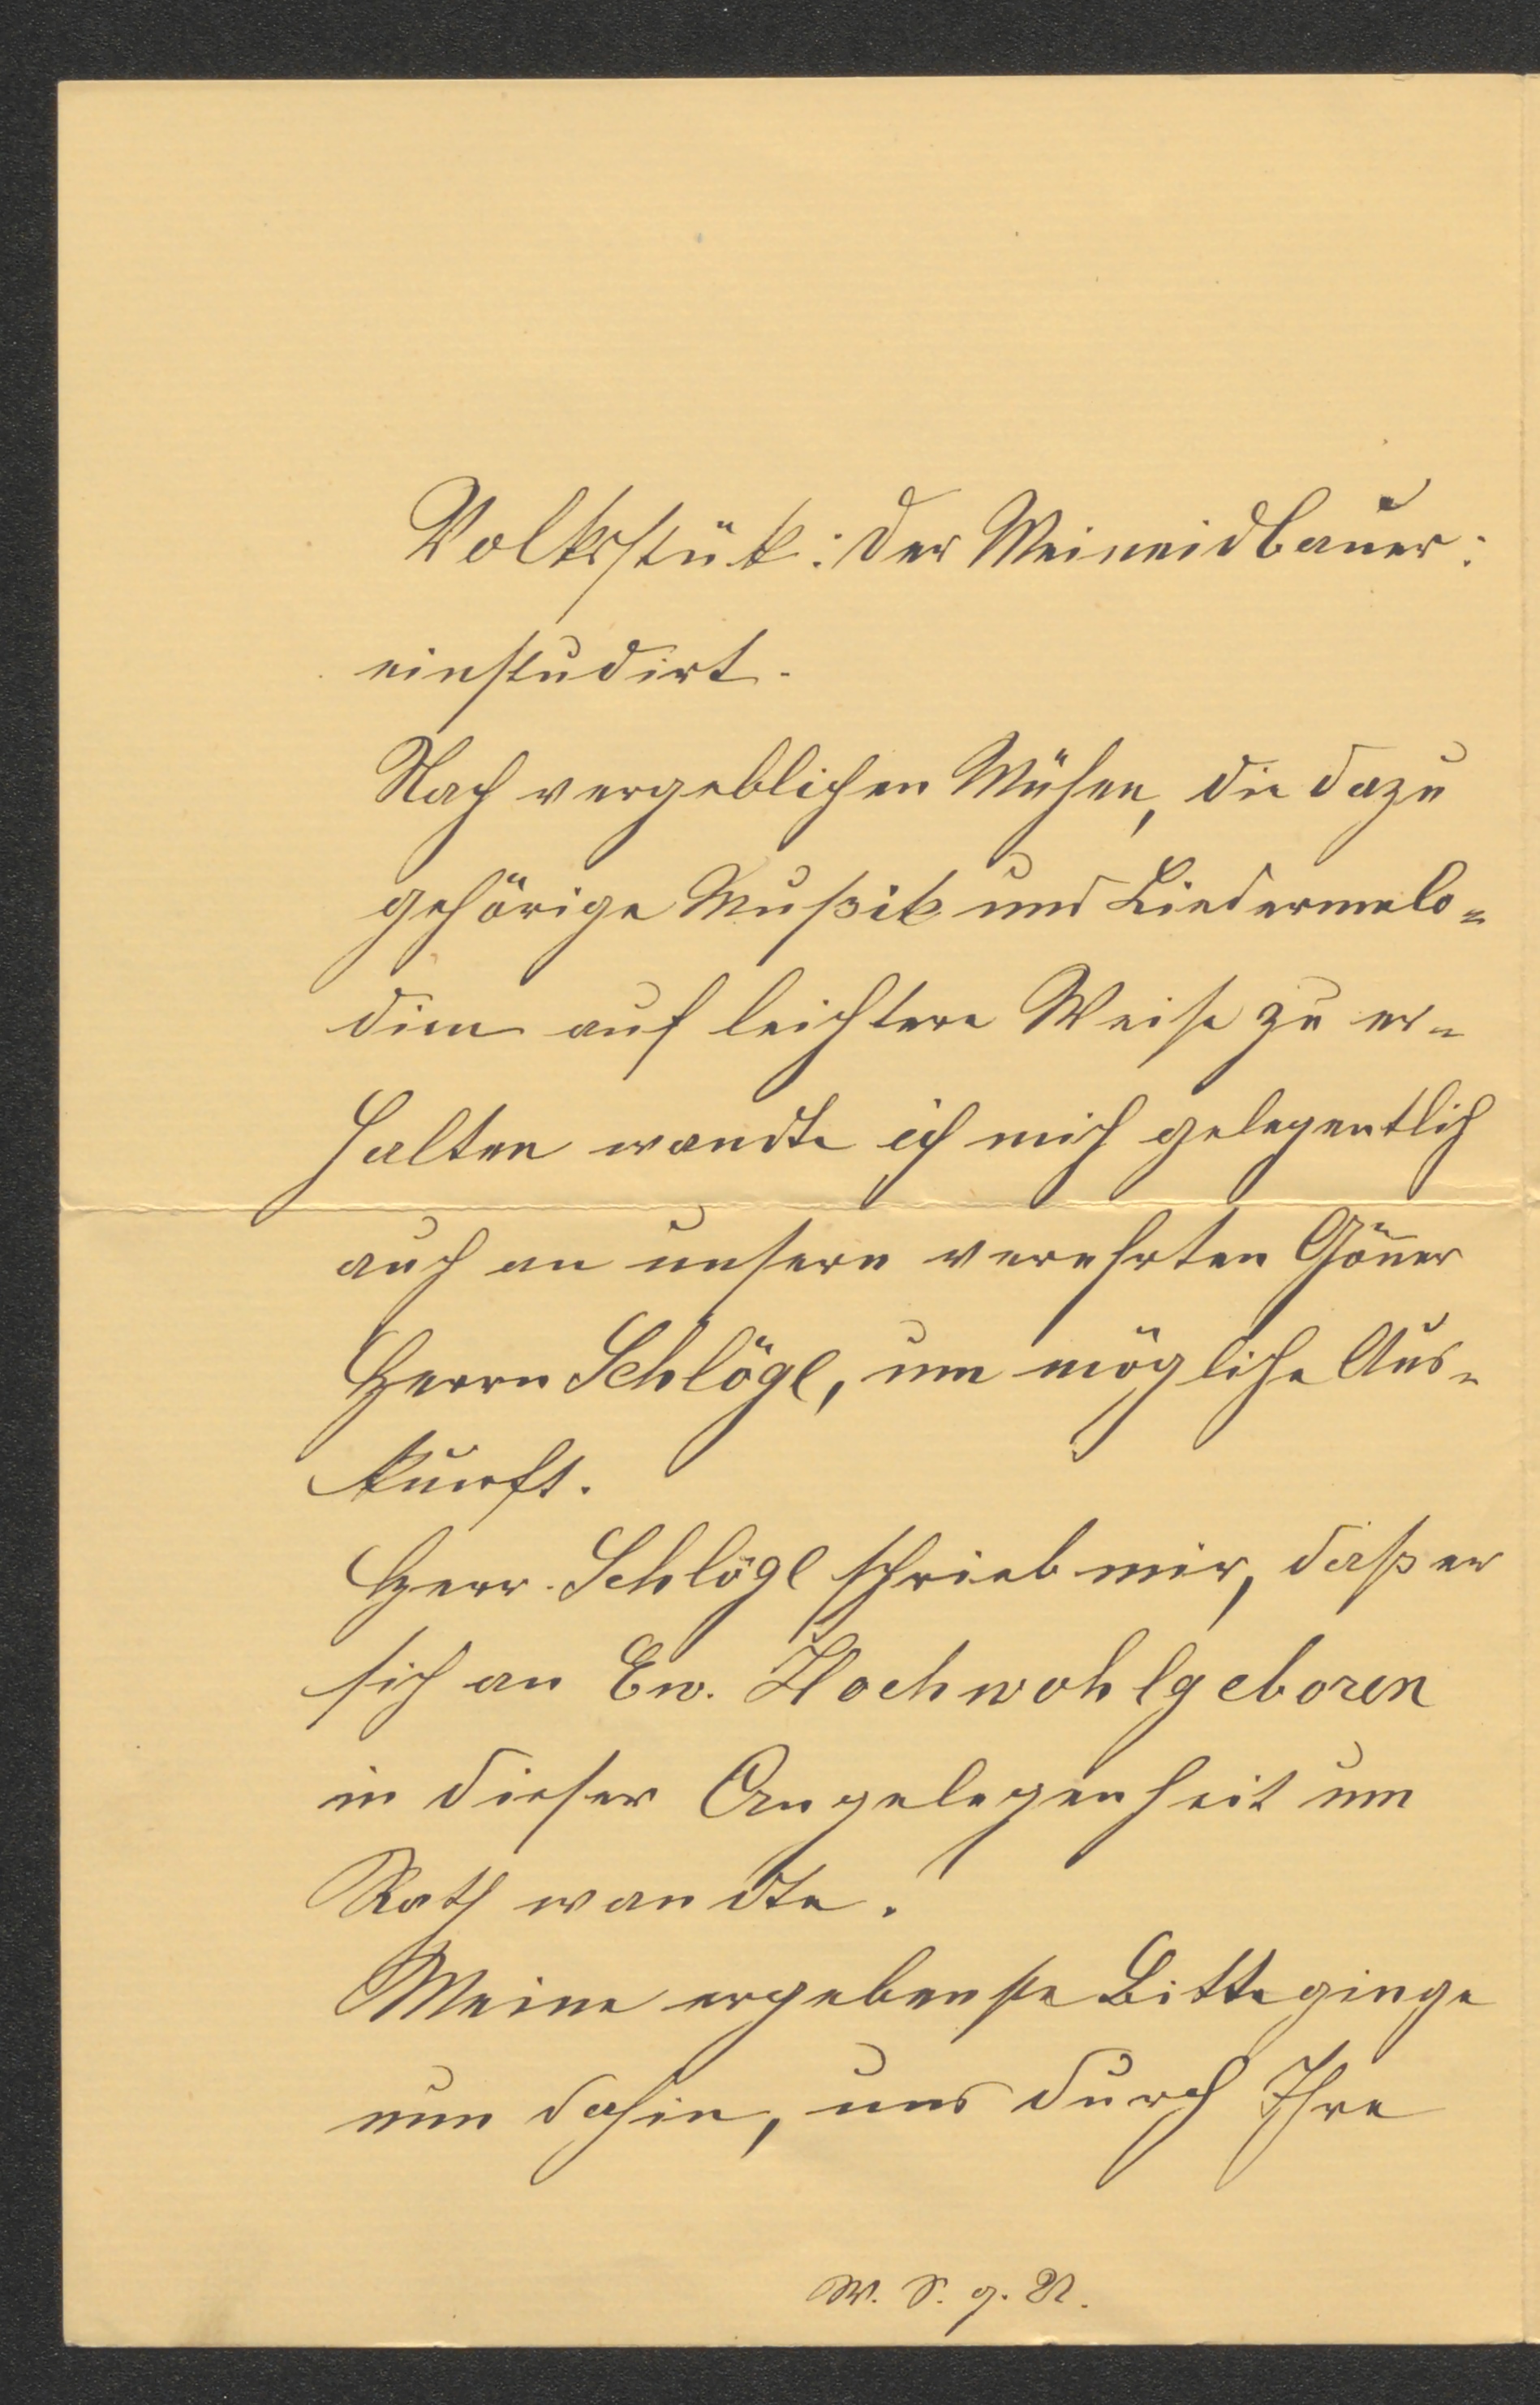 Volksstük: der Meineidbauer:
einstudirt.
Nach vergeblichen Mühen, die dazu
gehörige Mußik und Liedermelo=
dien auf leichtere Weise zu er=
halten wandte ich mich gelegentlich
auch an unsern verehrten Gön̄er
Herrn Schlögl, um mögliche Aus=
kunft.
Herr Schlögl schrieb mir, daß er
sich an Ew. Hochwohlgeboren
in dieser Angelegenheit um
Rath wandte.
Meine ergebenste Bitte ginge
nun dahin, uns durch Ihre